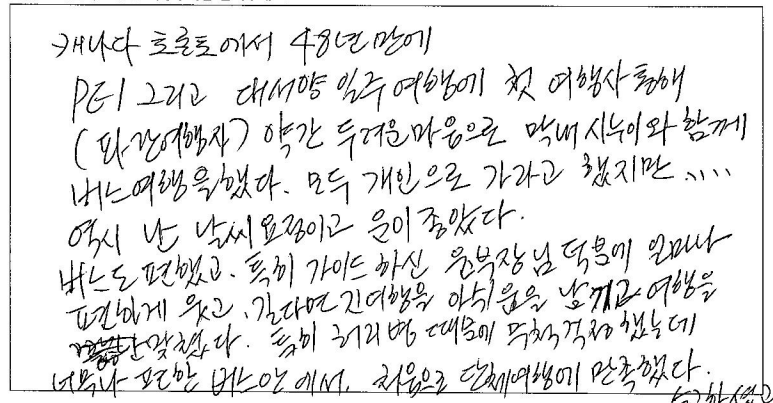 캐나다 토론토에서 48년만에
PEI 그리고 대서양 일주여행에 첫 여행사 통해
(파란여행사) 약간 두려운마음으로 막내 시누이와 함께
버스여행을했다. 모두 개인으로 가라고 했지만.....
역시 난 날씨요정이고 운이 좋았다.
버스도 편했고. 특히 가이드 하신 윤부장님 덕분에 얼마나
편하게 웃고, 길다면 긴여행을 아쉬움을 남기고 여행을
맞쳤다. 특히 허리병 때문에 무척걱정했는데
너무나 편안한 버스안에서. 처음으로 단체여행에 만족했다.